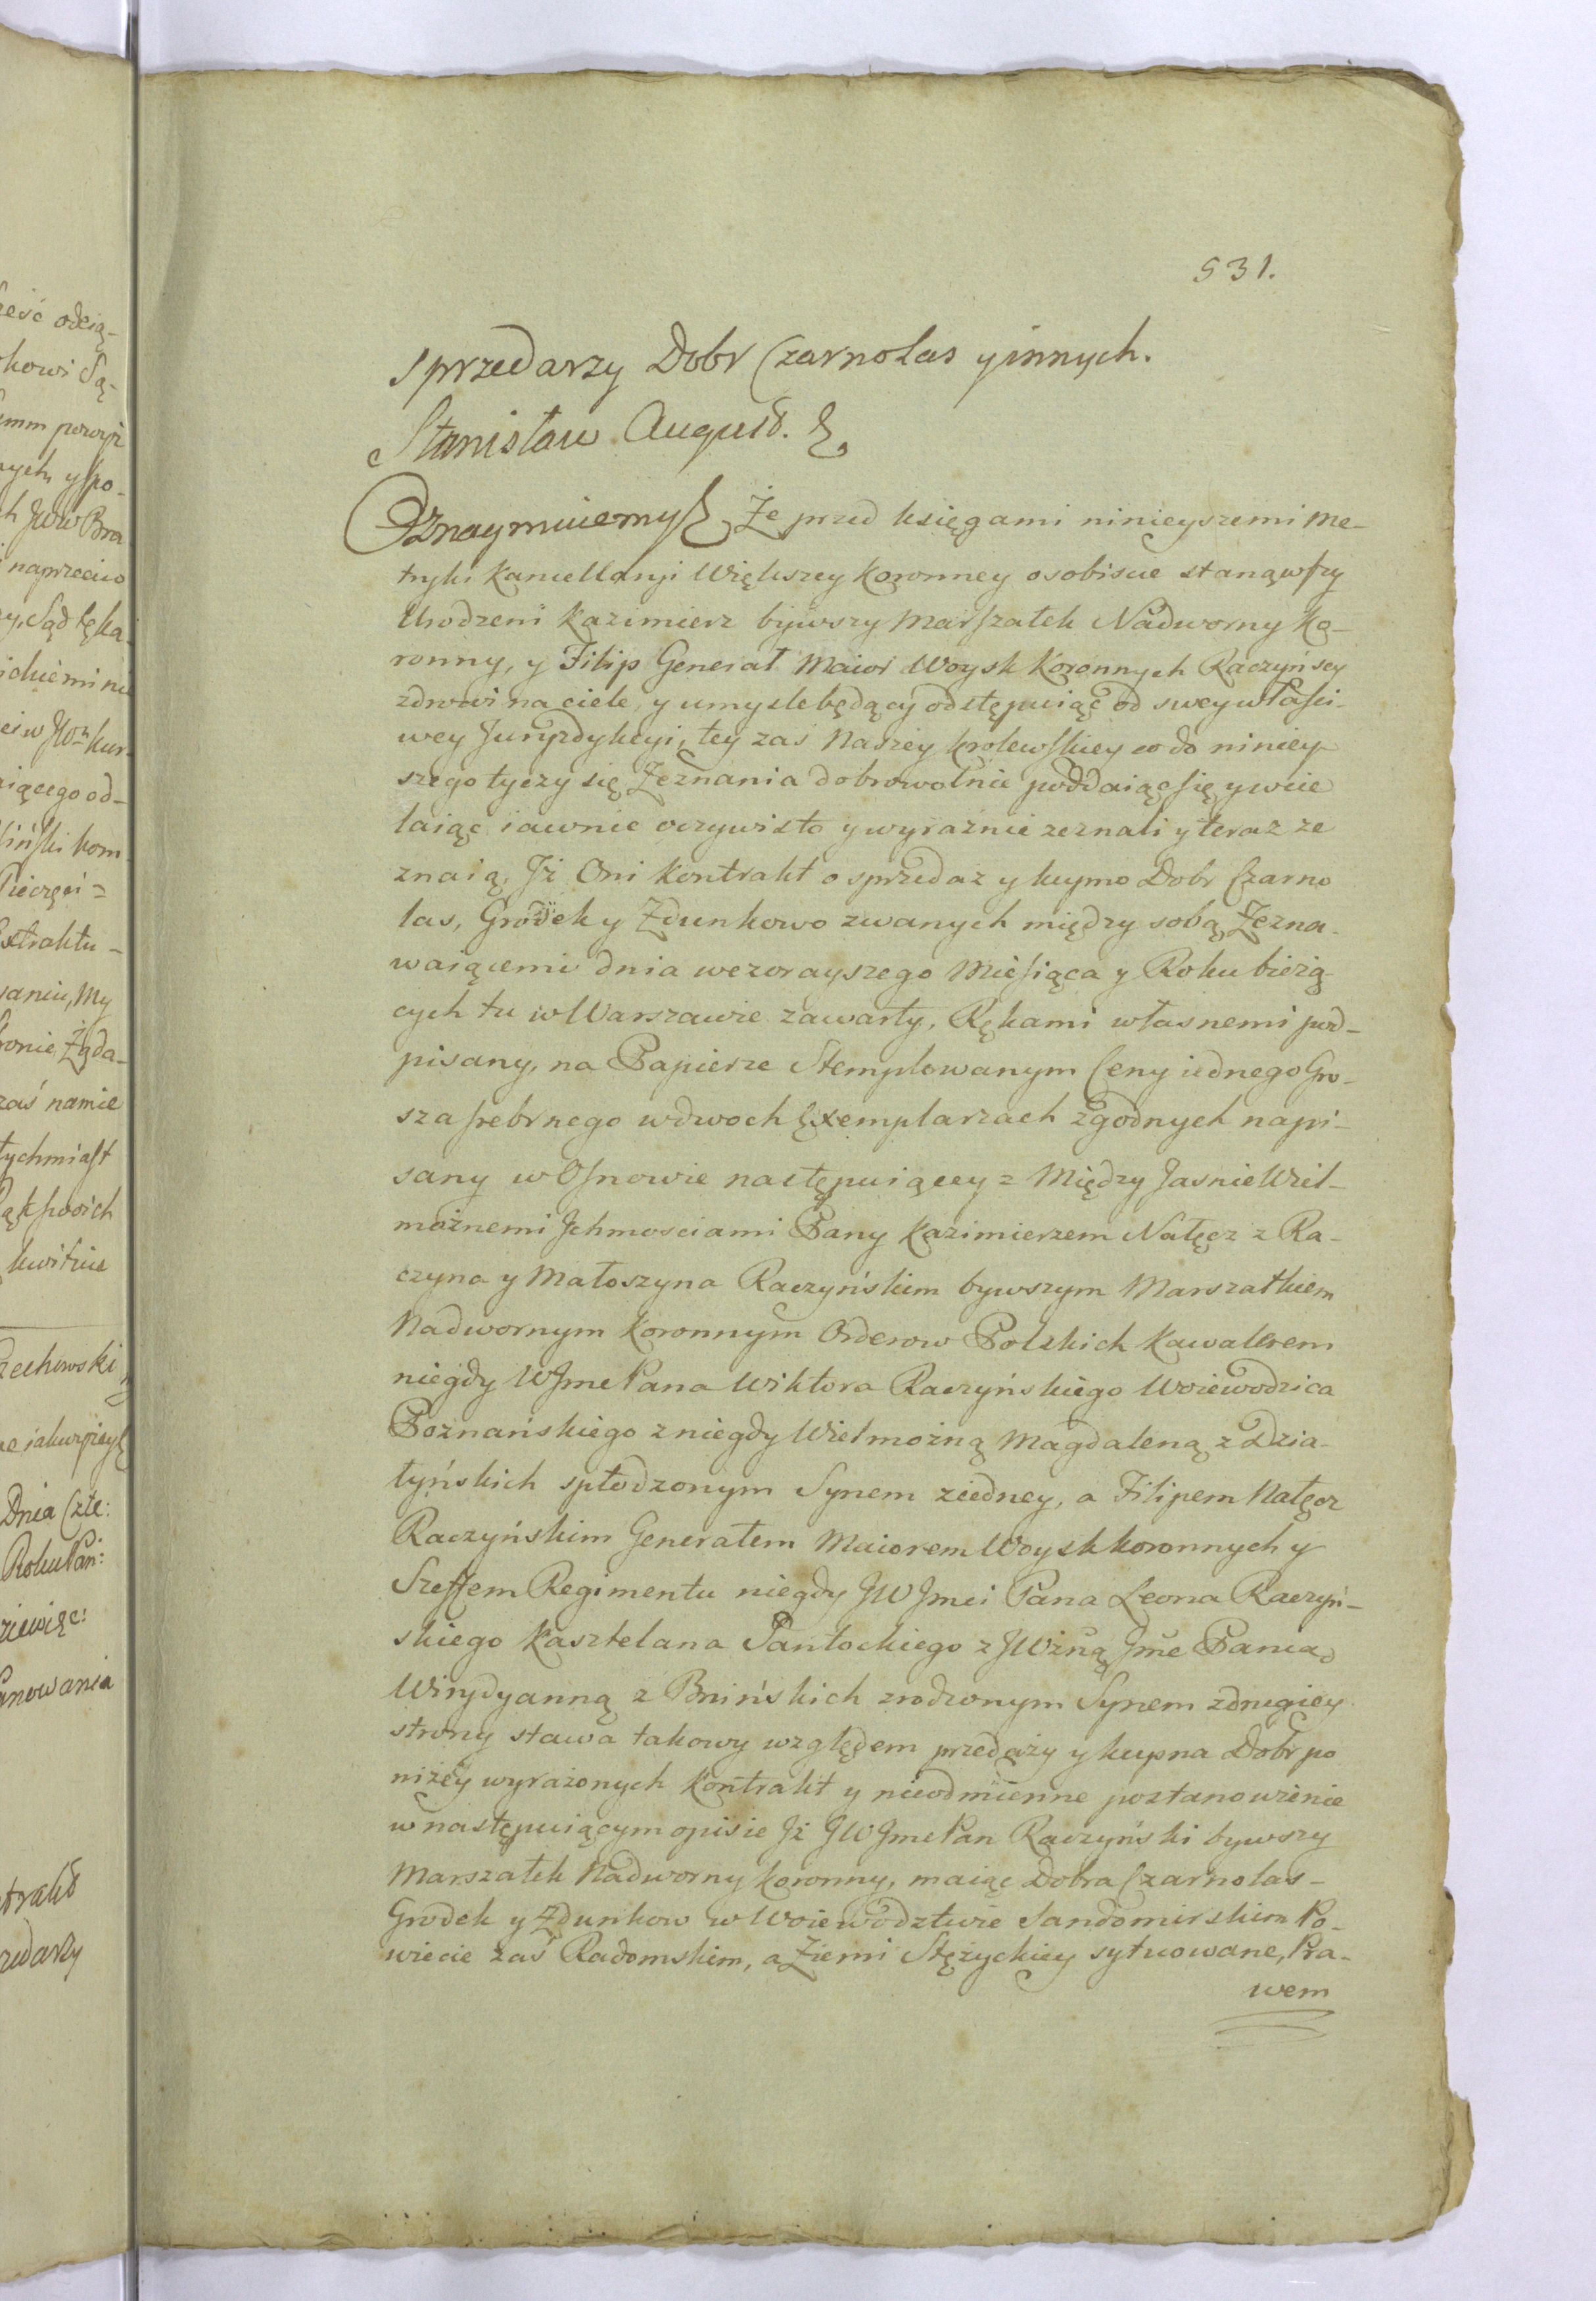 531.
sprzedarzy Dobr Czarnolas y innych.
Stanisław August. &
Oznaymuiemy & Że przed księgami ninieyszemi Me-
tryki Kancellaryi Większey Koronney osobiscie stanąwszy
Urodzeni Kazimierz bywszy Marszałek Nadworny Ko-
ronny, y Filip Generał Maior Woysk Koronnych Raczyńscy
zdrowi na ciele, y umysle będący odstępuiąc od swey właści-
wey Juryzdykcyi, tey zas Naszey Krolewskiey co do niniey-
szego tyczy się Zeznania dobrowolnie poddaiąc się y wcie
laiąc iawnie oczywisto y wyraznie zeznali y teraz ze
znaią, Jż Oni Kontrakt o sprzedaz y kupno Dobr Czarno
las, Grodek y Zdunkowo zwanych między sobą Zezna-
waiącemi dnia wczorayszego Miesiąca y Roku bieżą-
cych tu w Warszawie zawarty, Rękami własnemi pod-
pisany, na Papierze Stemplowanym Ceny iednego Gro-
sza srebrnego w dwoch Exemplarzach zgodnych napi-
sany w Osnowie następuiącey = Między Jasnie Wiel-
możnemi Jchmosciami Pany Kazimierzem Nałęcz z Ra-
czyna y Małoszyna Raczyńskim bywszym Marszałkiem
Nadwornym Koronnym Orderow Polskich Kawalerem
niegdy WJme Pana Wiktora Raczyńskiego Woiewodzica
Poznańskiego z niegdy Wielmożną Magdaleną z Dzia-
łyńskich spłodzonym Synem z iedney, a Filipem Nałęcz
Raczyńskim Generałem Maiorem Woysk koronnych y
Szeffem Regimentu niegdy JW Jmci Pana Leona Raczyń-
skiego Kasztelana Santockiego z JWżną Jme Panią
Wirydyanną z Bnińskich zrodzonym Synem z drugiey
strony stawa takowy względem przedaży y kupna Dobr po
niżey wyrażonych Kontrakt y nieodmienne postanowienie
w następuiącym opisie Jż JW Jme Pan Raczyński bywszy
Marszałek Nadworny Koronny, maiąc Dobra Czarnolas-
Grodek y Zdunkow w Woiewodztwie Sandomirskim Po-
wiecie zaś Radomskim, a Ziemi Stężyckiey sytuowane, Pra-
wem